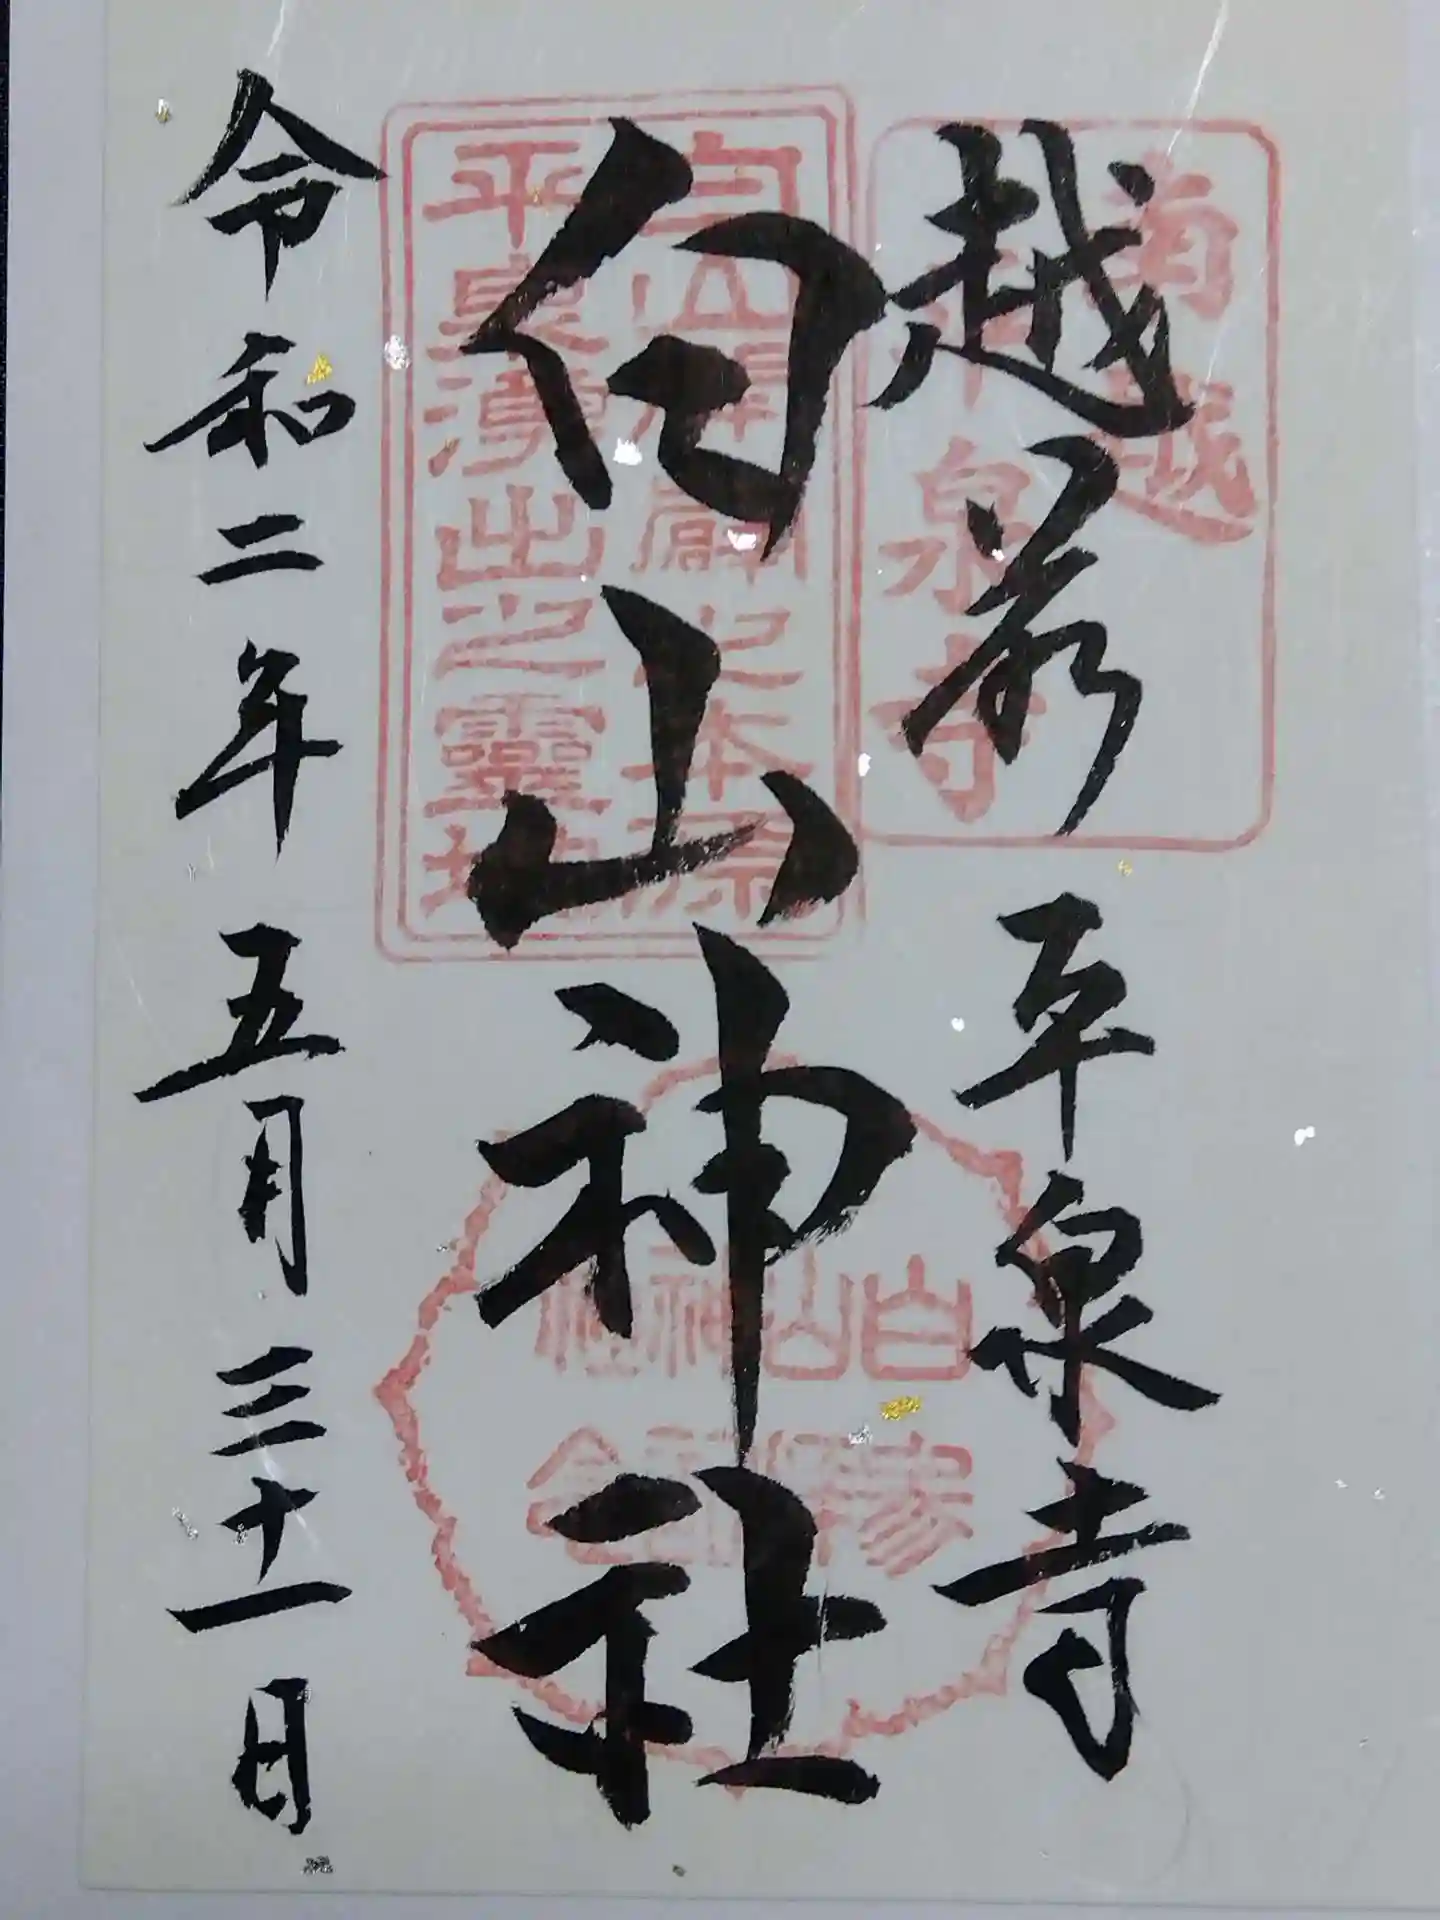 越前 平泉寺
白山神社
令和二年 五月 三十一日
南越
平泉寺
白山開闢之本源
平泉湧出之靈地
白山神社